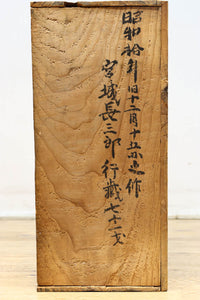 昭和拾年旧十二月十五日作
宮城長三郎行蔵七十一才